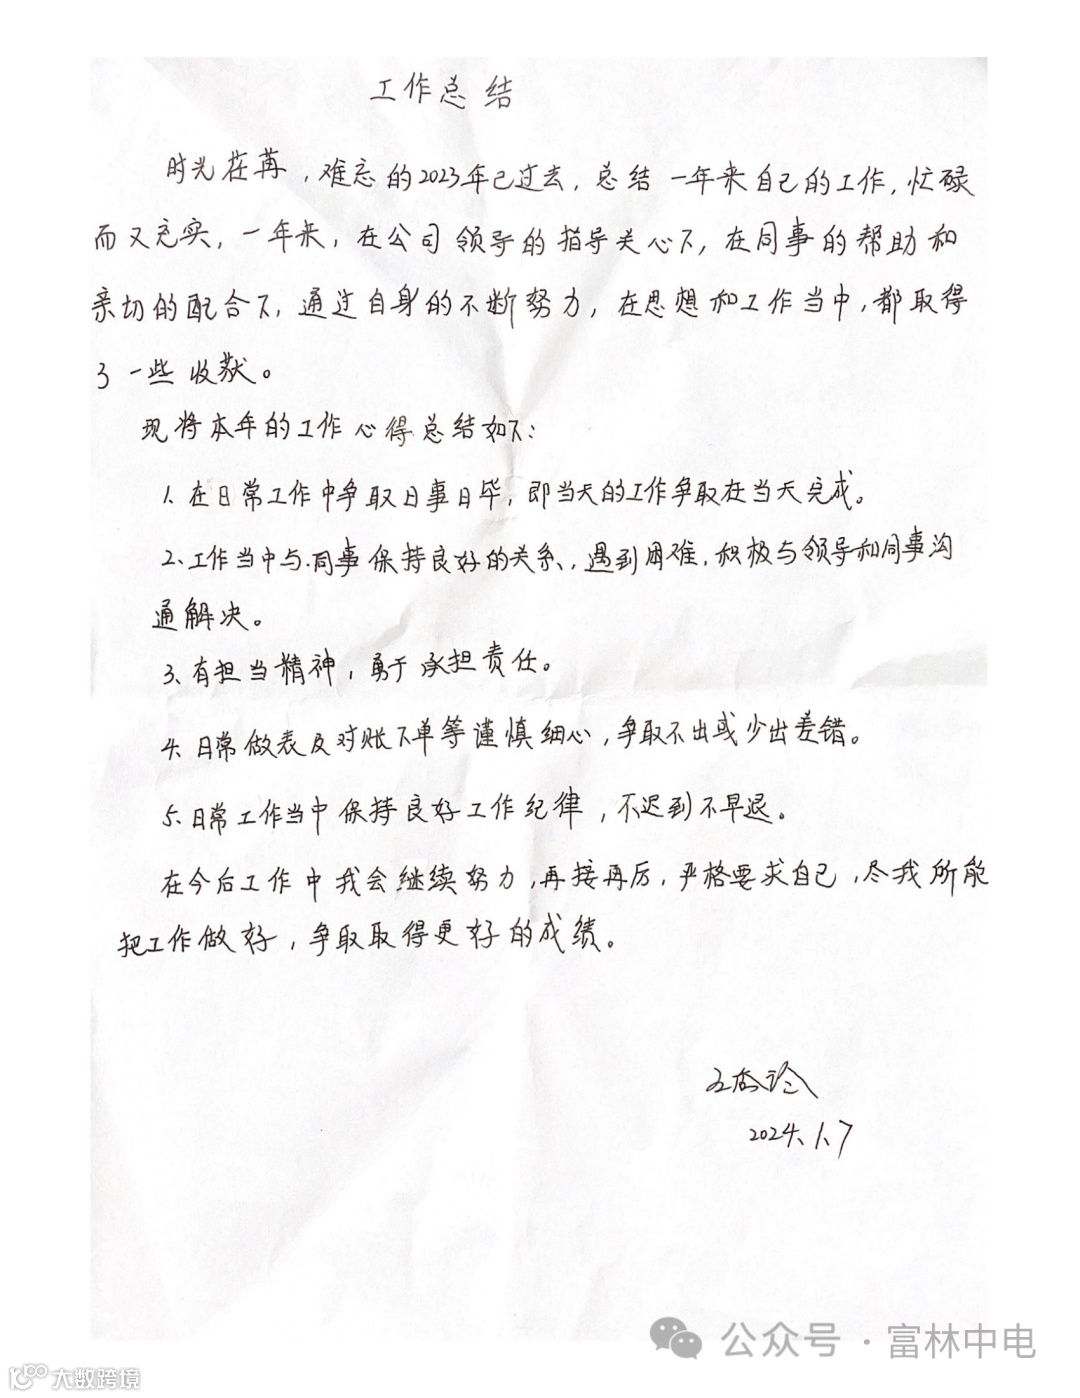 工作总结
时光荏苒，难忘的2023年已过去，总结一年来自己的工作，忙碌
而又充实，一年来，在公司领导的指导关心下，在同事的帮助和
亲切的配合下，通过自身的不断努力，在思想和工作当中，都取得
了一些收获。
现将本年的工作心得总结如下：
1、在日常工作中争取日事日毕，即当天的工作争取在当天完成。
2、工作当中与同事保持良好的关系，遇到困难，积极与领导和同事沟
通解决。
3、有担当精神，勇于承担责任。
4、日常做表及对账下单等谨慎细心，争取不出或少出差错。
5、日常工作当中保持良好工作纪律，不迟到不早退。
在今后工作中我会继续努力，再接再厉，严格要求自己，尽我所能
把工作做好，争取取得更好的成绩。
2024、1、7
公众号·富林中电
大数跨境